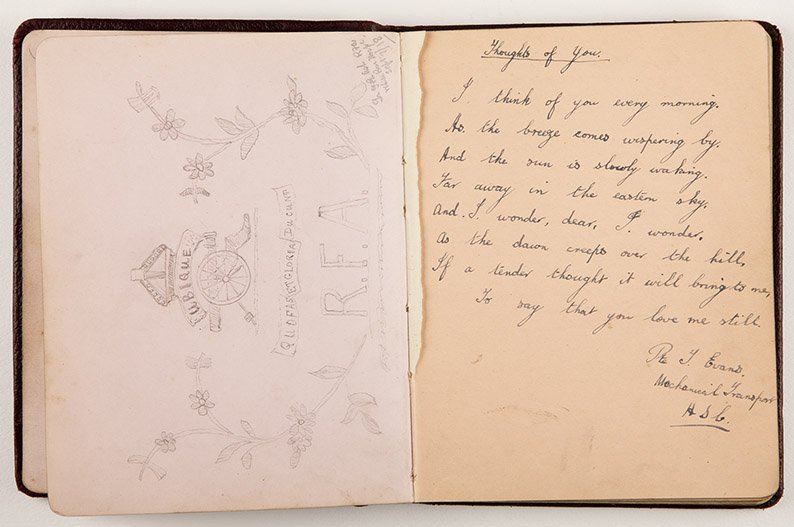 UBIQUE
QUO FAS ET GLORIA DUCUNT
R.F.A.
Thoughts of You.
I think of you every morning.
As the breeze comes wispering by.
And the sun is slowly waking.
Far away in the eastern sky.
And I wonder, dear, I wonder,
As the dawn creeps over the hill,
If a tender thought it will bring to me,
To say that you love me still.
Pte J. Evans.
Mechanical Transport
A S C.